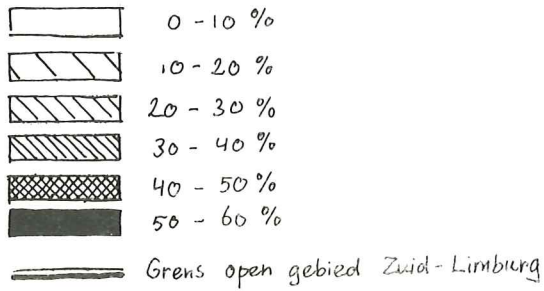 0 - 10 %
10 - 20 %
20 - 30 %
30 - 40 %
40 - 50 %
50 - 60 %
Grens open gebied Zuid-Limburg